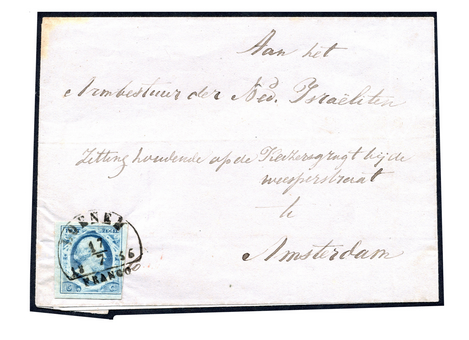 Aan het
Armbestuur der Ned. Israëliten
Zitting houdende op de Keizersgragt bij de
weesperstraat
te
Amsterdam
17
7
18 56
FRANCO